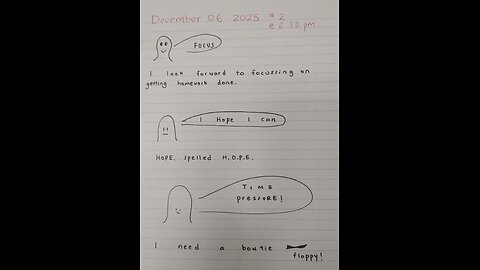 December 06 2025 #2
@ 8:10 pm.
FOCUS
I look forward to focussing on
getting homework done.
I Hope I can
HOPE. spelled H.O.P.E.
TIME
pressure!
I need a bowtie
floppy!